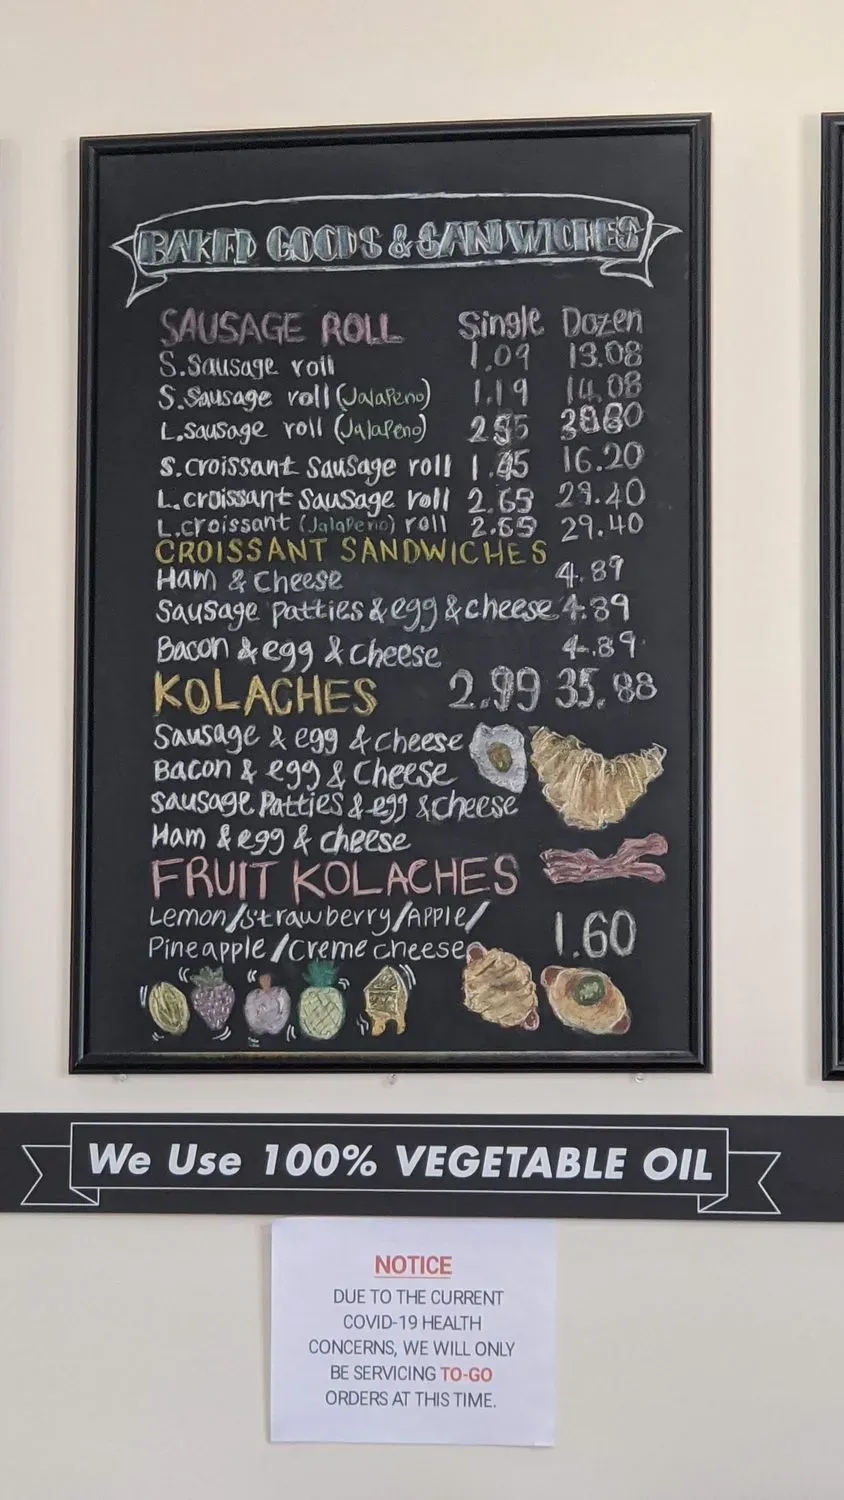 BAKED GOODS & SANDWICHES
SAUSAGE ROLL Single Dozen
S.Sausage roll 1.09 13.08
S.Sausage roll (Jalapeno) 1.19 14.08
L.sausage roll (Jalapeno)
S.croissant Sausage roll 16.20
L.croissant Sausage roll 2.65 29.40
L.croissant (Jalapeno) roll 2.65 29.40
CROISSANT SANDWICHES
Ham & Cheese 4.89
Sausage patties & egg & cheese 4.89
Bacon & egg & cheese 4.89
KOLACHES 2.99 35.88
Sausage & egg & cheese
Bacon & egg & Cheese
Sausage Patties & egg & cheese
Ham & egg & cheese
FRUIT KOLACHES
Lemon/strawberry/APPle/
Pineapple/Creme cheese 1.60
We Use 100% VEGETABLE OIL
NOTICE
DUE TO THE CURRENT
COVID-19 HEALTH
CONCERNS, WE WILL ONLY
BE SERVICING TO-GO
ORDERS AT THIS TIME.